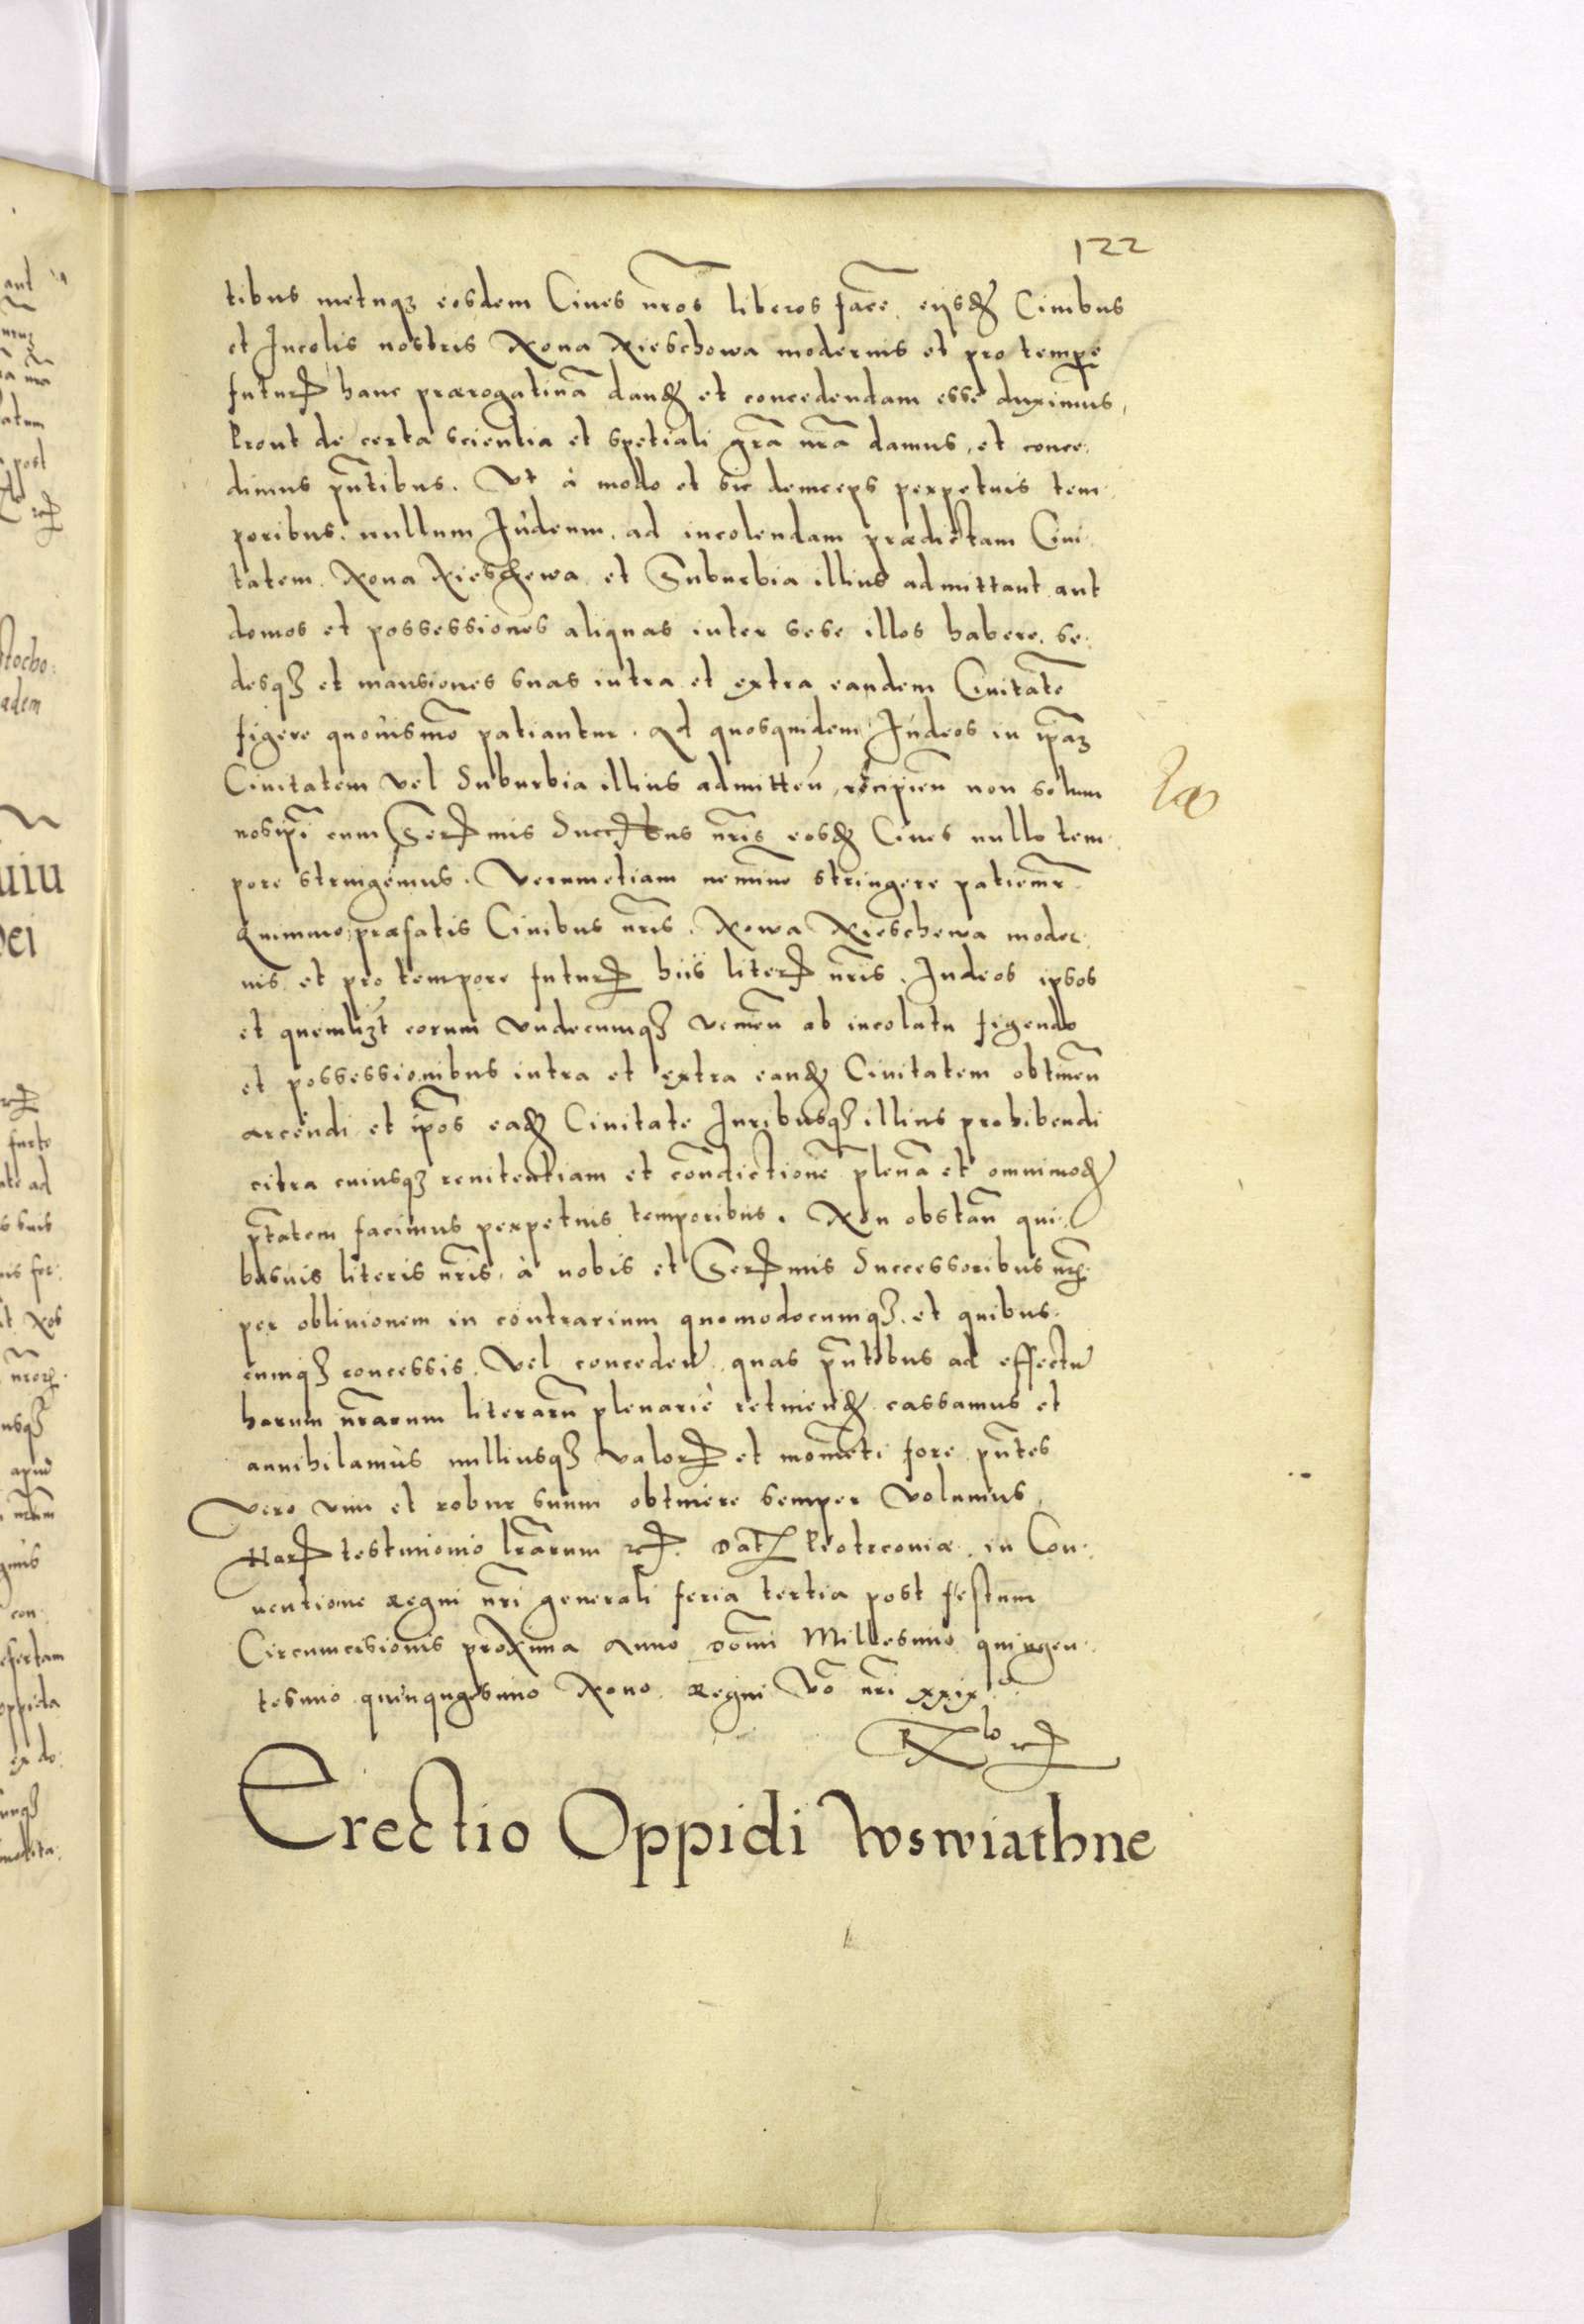 122
tibus metuqꝫ eosdem Ciues nr̃os liberos facẽ. eijsdꝫ Ciuibus
et Incolis nostris Noua Nieschowa modernis et pro tempore
futurꝭ hanc prærogatiuã dandꝫ et concedendam esse duximus,
Prout de certa scientia et spetiali gr̃a nr̃a damus, et conce:
dimus pñtibus. Vt à modo et sic deinceps perpetuis tem:
poribus. nullum Iúdeum, ad incolendam prædictam Ciui:
tatem. Noua Nieschewa et Suburbia illius admittant aut
domos et possessiones aliquas inter sese illos habere. se:
desqꝫ et mansiones suas intra et extra eandem Ciuitatẽ
figere quouismõ patiantur. Ad quosquidem Iúdeos in ip̃aꝫ
Ciuitatem vel Suburbia illius admitteñ, recipieñ non solum
nosip̃i cum Serꝭmis Succꝭbus nr̃is eosdꝫ Ciues nullo tem:
pore stringemus. Verumetiam nemine stringere patiemr̃.
Quinimo præfatis Ciuibus nr̃is. Nowa Nieschewa moder:
nis et pro tempore futurꝭ hiis literꝭ nr̃is. Iudeos ipsos
et quemlꝫt eorum vndecumqꝫ venieñ ab incolatu figendo
et possessionibus intra et extra eandꝫ Ciuitatem obtineñ
arcendi et ip̃os eadꝫ Ciuitate Iuribusqꝫ illius prohibendi
citra cuiusqꝫ renitentiam et cõndictionẽ plenã et omnimodꝫ
p̃tatem facimus perpetuis temporibus. Non obstañ qui:
busuis literis nr̃is. à nobis et Serꝭmis Successoribus nr̃is.
per obliuionem in contrarium quomodocumqꝫ. et quibus:
cumqꝫ concessis. Vel concedeñ. quas pñtibus ad effectũ
harum nr̃arum literarũ plenariè retinendꝫ cassamus et
annihilamùs nulliusqꝫ valorꝭ et momẽti fore. pñtes
vero vim et robur suum obtinere semper volumus.
Harꝭ testimonio lr̃arum ꝛcꝭ. Datꝫ Piotrcouiæ. in Con:
uentione Regni nr̃i generali feria tertia post festum
Circumcisionis proxima Anno Domĩ Millesimo quingen:
tesimo quinquagesimo Nono. Regni Võ nr̃i xxix.
Erectio Oppidi Wswiathne